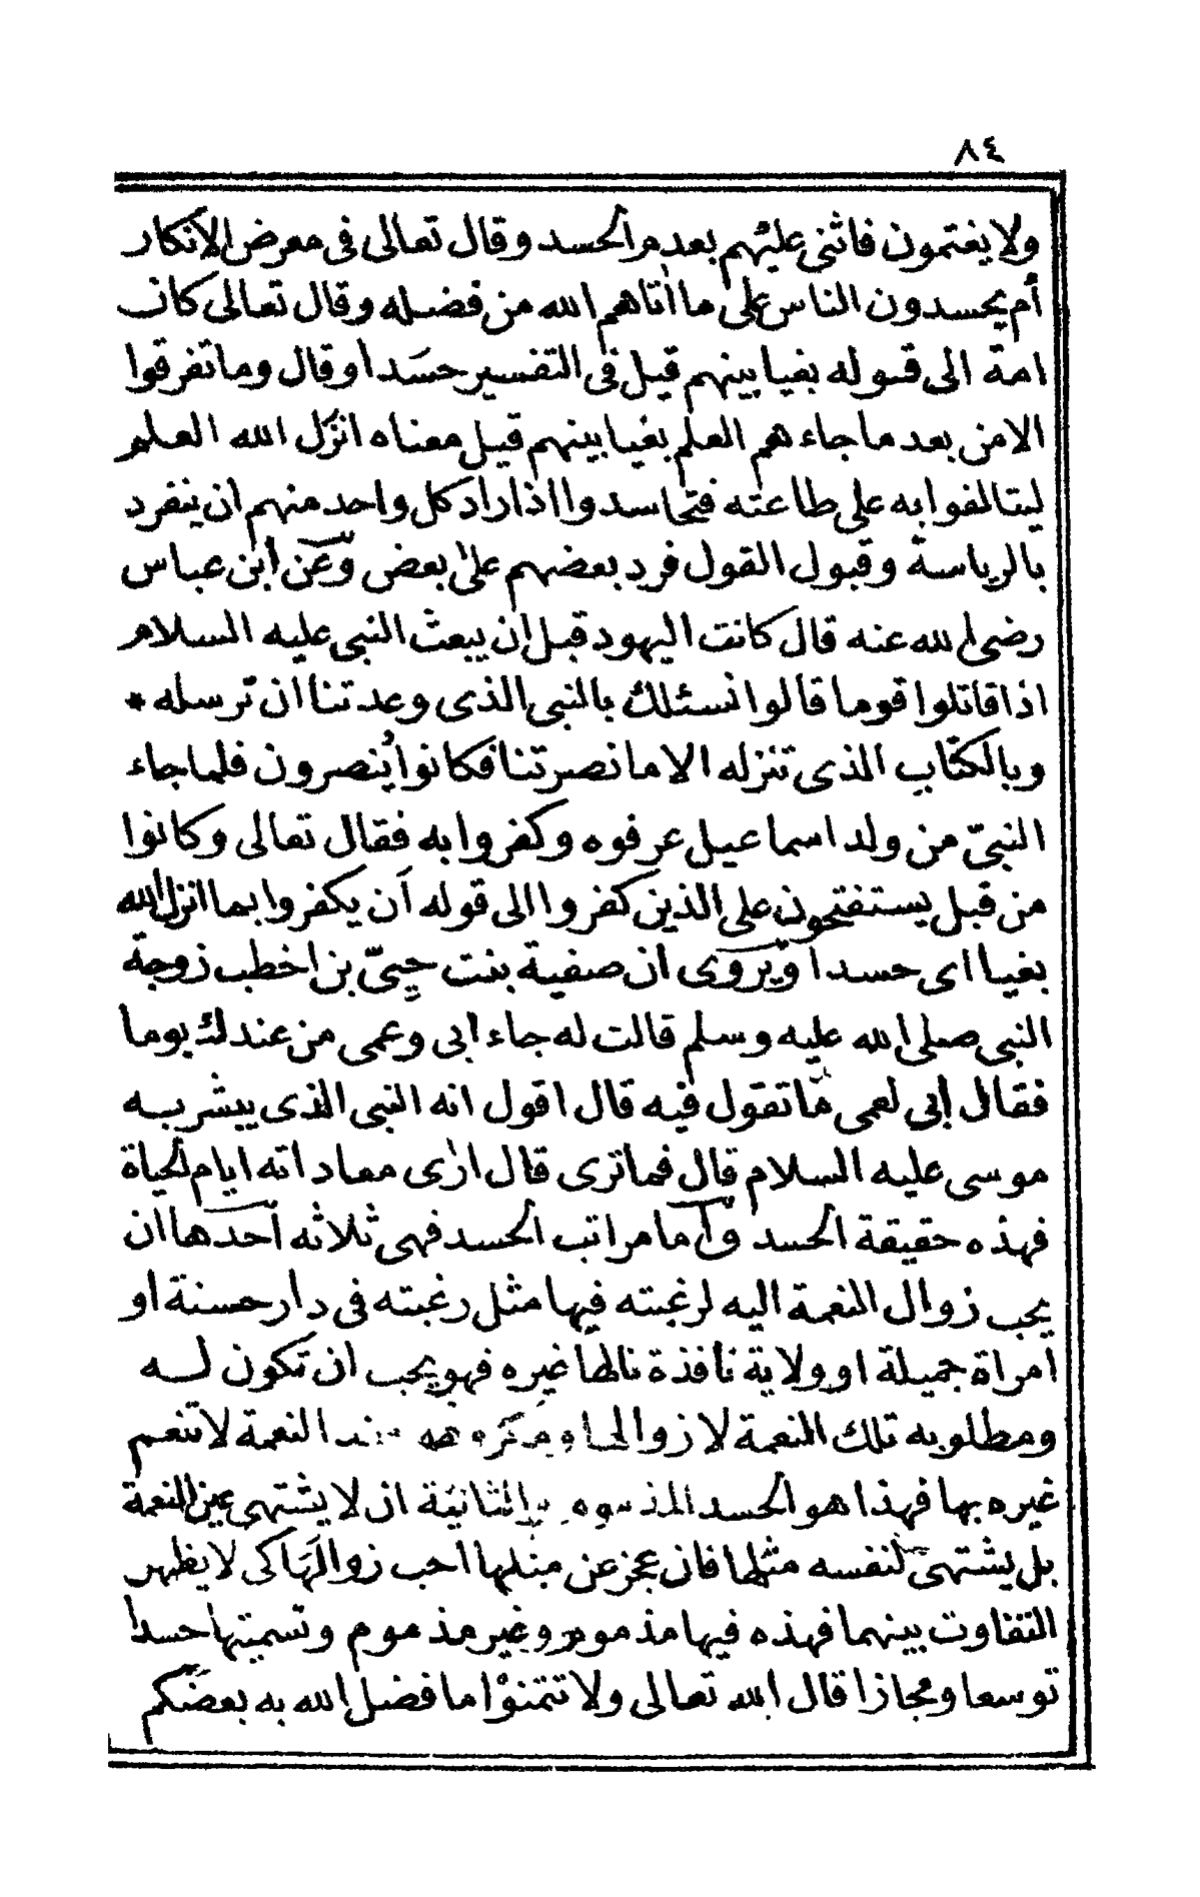 ٨٤
ولا يغتمون فاثنى عليهم بعدم الحسد وقال تعالى فى معرض الانكار
أم يحسدون الناس على ما اتاهم الله من فضله وقال تعالى كان
امة الى قوله بغيا بينهم قيل فى التفسير حسدا وقال وما تفرقوا
الا من بعد ما جاءهم العلم بغيا بينهم قيل معناه انزل الله العلم
ليتالفوا به على طاعته فتحاسدوا اذا راد كل واحد منهم ان ينفرد
بالرياسة وقبول القول فرد بعضهم على بعض وعن ابن عباس
رضى الله عنه قال كانت اليهود قبل ان يبعث النبى عليه السلام
اذا قاتلوا قوما قالوا نسئلك بالنبى الذى وعدتنا ان ترسله *
وبالكتاب الذى تنزله الا ما نصرتنا فكانوا يُنصرون فلما جاء
النبىّ من ولد اسماعيل عرفوه وكفروا به فقال تعالى وكانوا
من قبل يستفتحون على الذين كفروا الى قوله أن يكفروا بما انزل الله
بغيا اى حسدا ويروى ان صفية بنت حيىّ بن اخطب زوجة
النبى صلى الله عليه وسلم قالت له جاء ابى وعمى من عندك يوما
فقال ابى لعمى ما تقول فيه قال اقول انه النبى الذى يبشر به
موسى عليه السلام قال فما ترى قال ارى معاداته ايام الحياة
فهذه حقيقة الحسد وأما مراتب الحسد فهى ثلاثه أحدها ان
يحب زوال النعمة اليه لرغبته فيها مثل رغبته فى دار حسنة او
امراة جميلة او ولاية نافذة نالها غيره فهو يحب ان تكون له
ومطلوبه تلك النعمة لا زوالها ومكروهه النعمة لا تنعم
غيره بها فهذا هو الحسد المذموم والثانية ان لا يشتهى عين النعمة
بل يشتهى لنفسه مثلها فان عجز عن مثلها احب زوالها كى لا يظهر
التفاوت بينهما فهذه فيها مذموم وغير مذموم وتسميتها حسدا
توسعا ومجازا قال الله تعالى ولا تتمنوا ما فضل الله به بعضكم